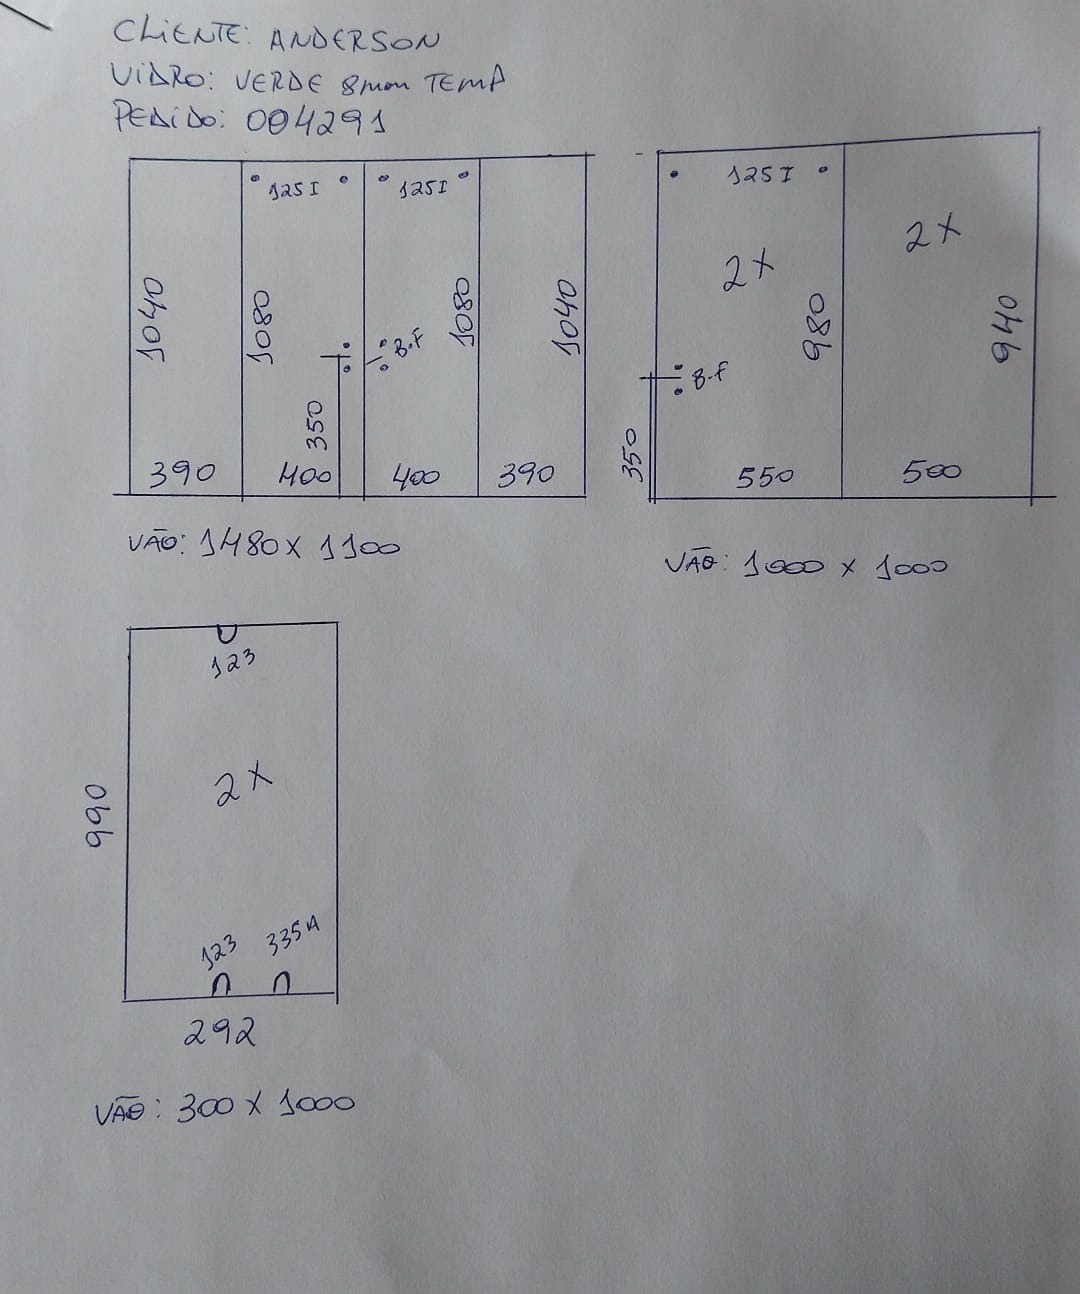 CLIENTE: ANDERSON
VIDRO: VERDE 8mm TEMP
PEDIDO: 004291
125I 125I
1040 1080 1080 1040
B.F
350
390 400 400 390
VÃO: 1480 X 1100
125I
2X 2X
980 940
B.F
350
550 500
VÃO: 1000 X 1000
123
2X
990
123 335A
292
VÃO: 300 X 1000